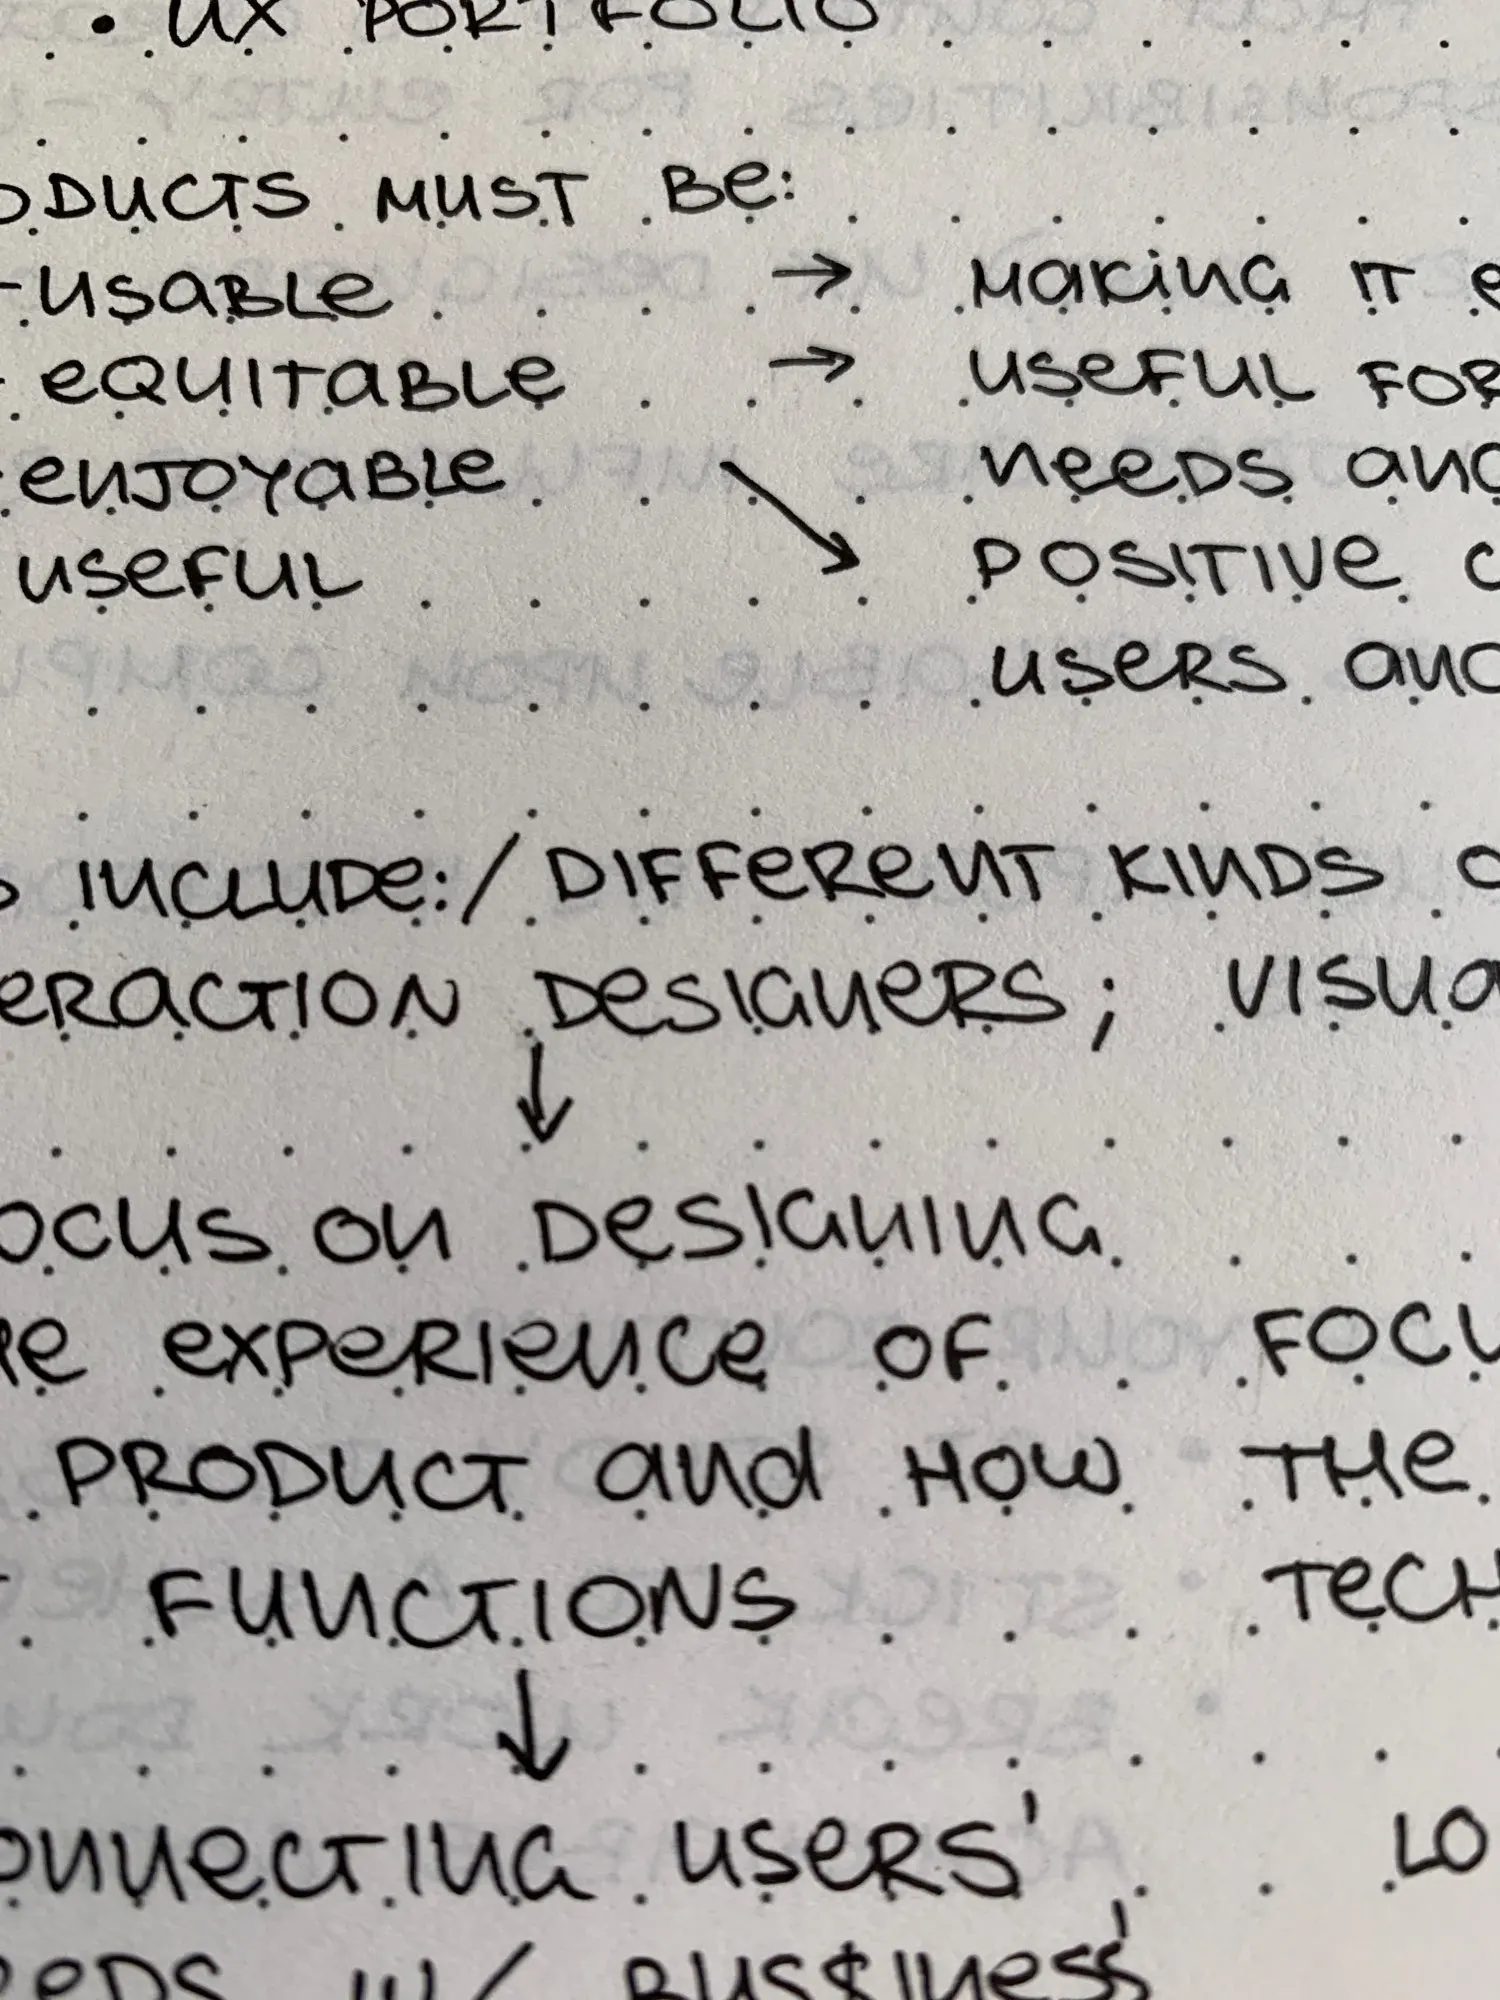 • UX PORTFOLIO
ODUCTS MUST BE:
- USABLE → MAKING IT E
- EQUITABLE → USEFUL FOR
- ENJOYABLE ↘ NEEDS AND
USEFUL POSITIVE C
USERS AND
S INCLUDE:/ DIFFERENT KINDS O
ERACTION DESIGNERS; VISUA
↓
OCUS ON DESIGNING
HE EXPERIENCE OF FOCU
PRODUCT AND HOW THE
FUNCTIONS TECH
↓
ONNECTING USERS' LO
EEDS W/ BUSSINESS'